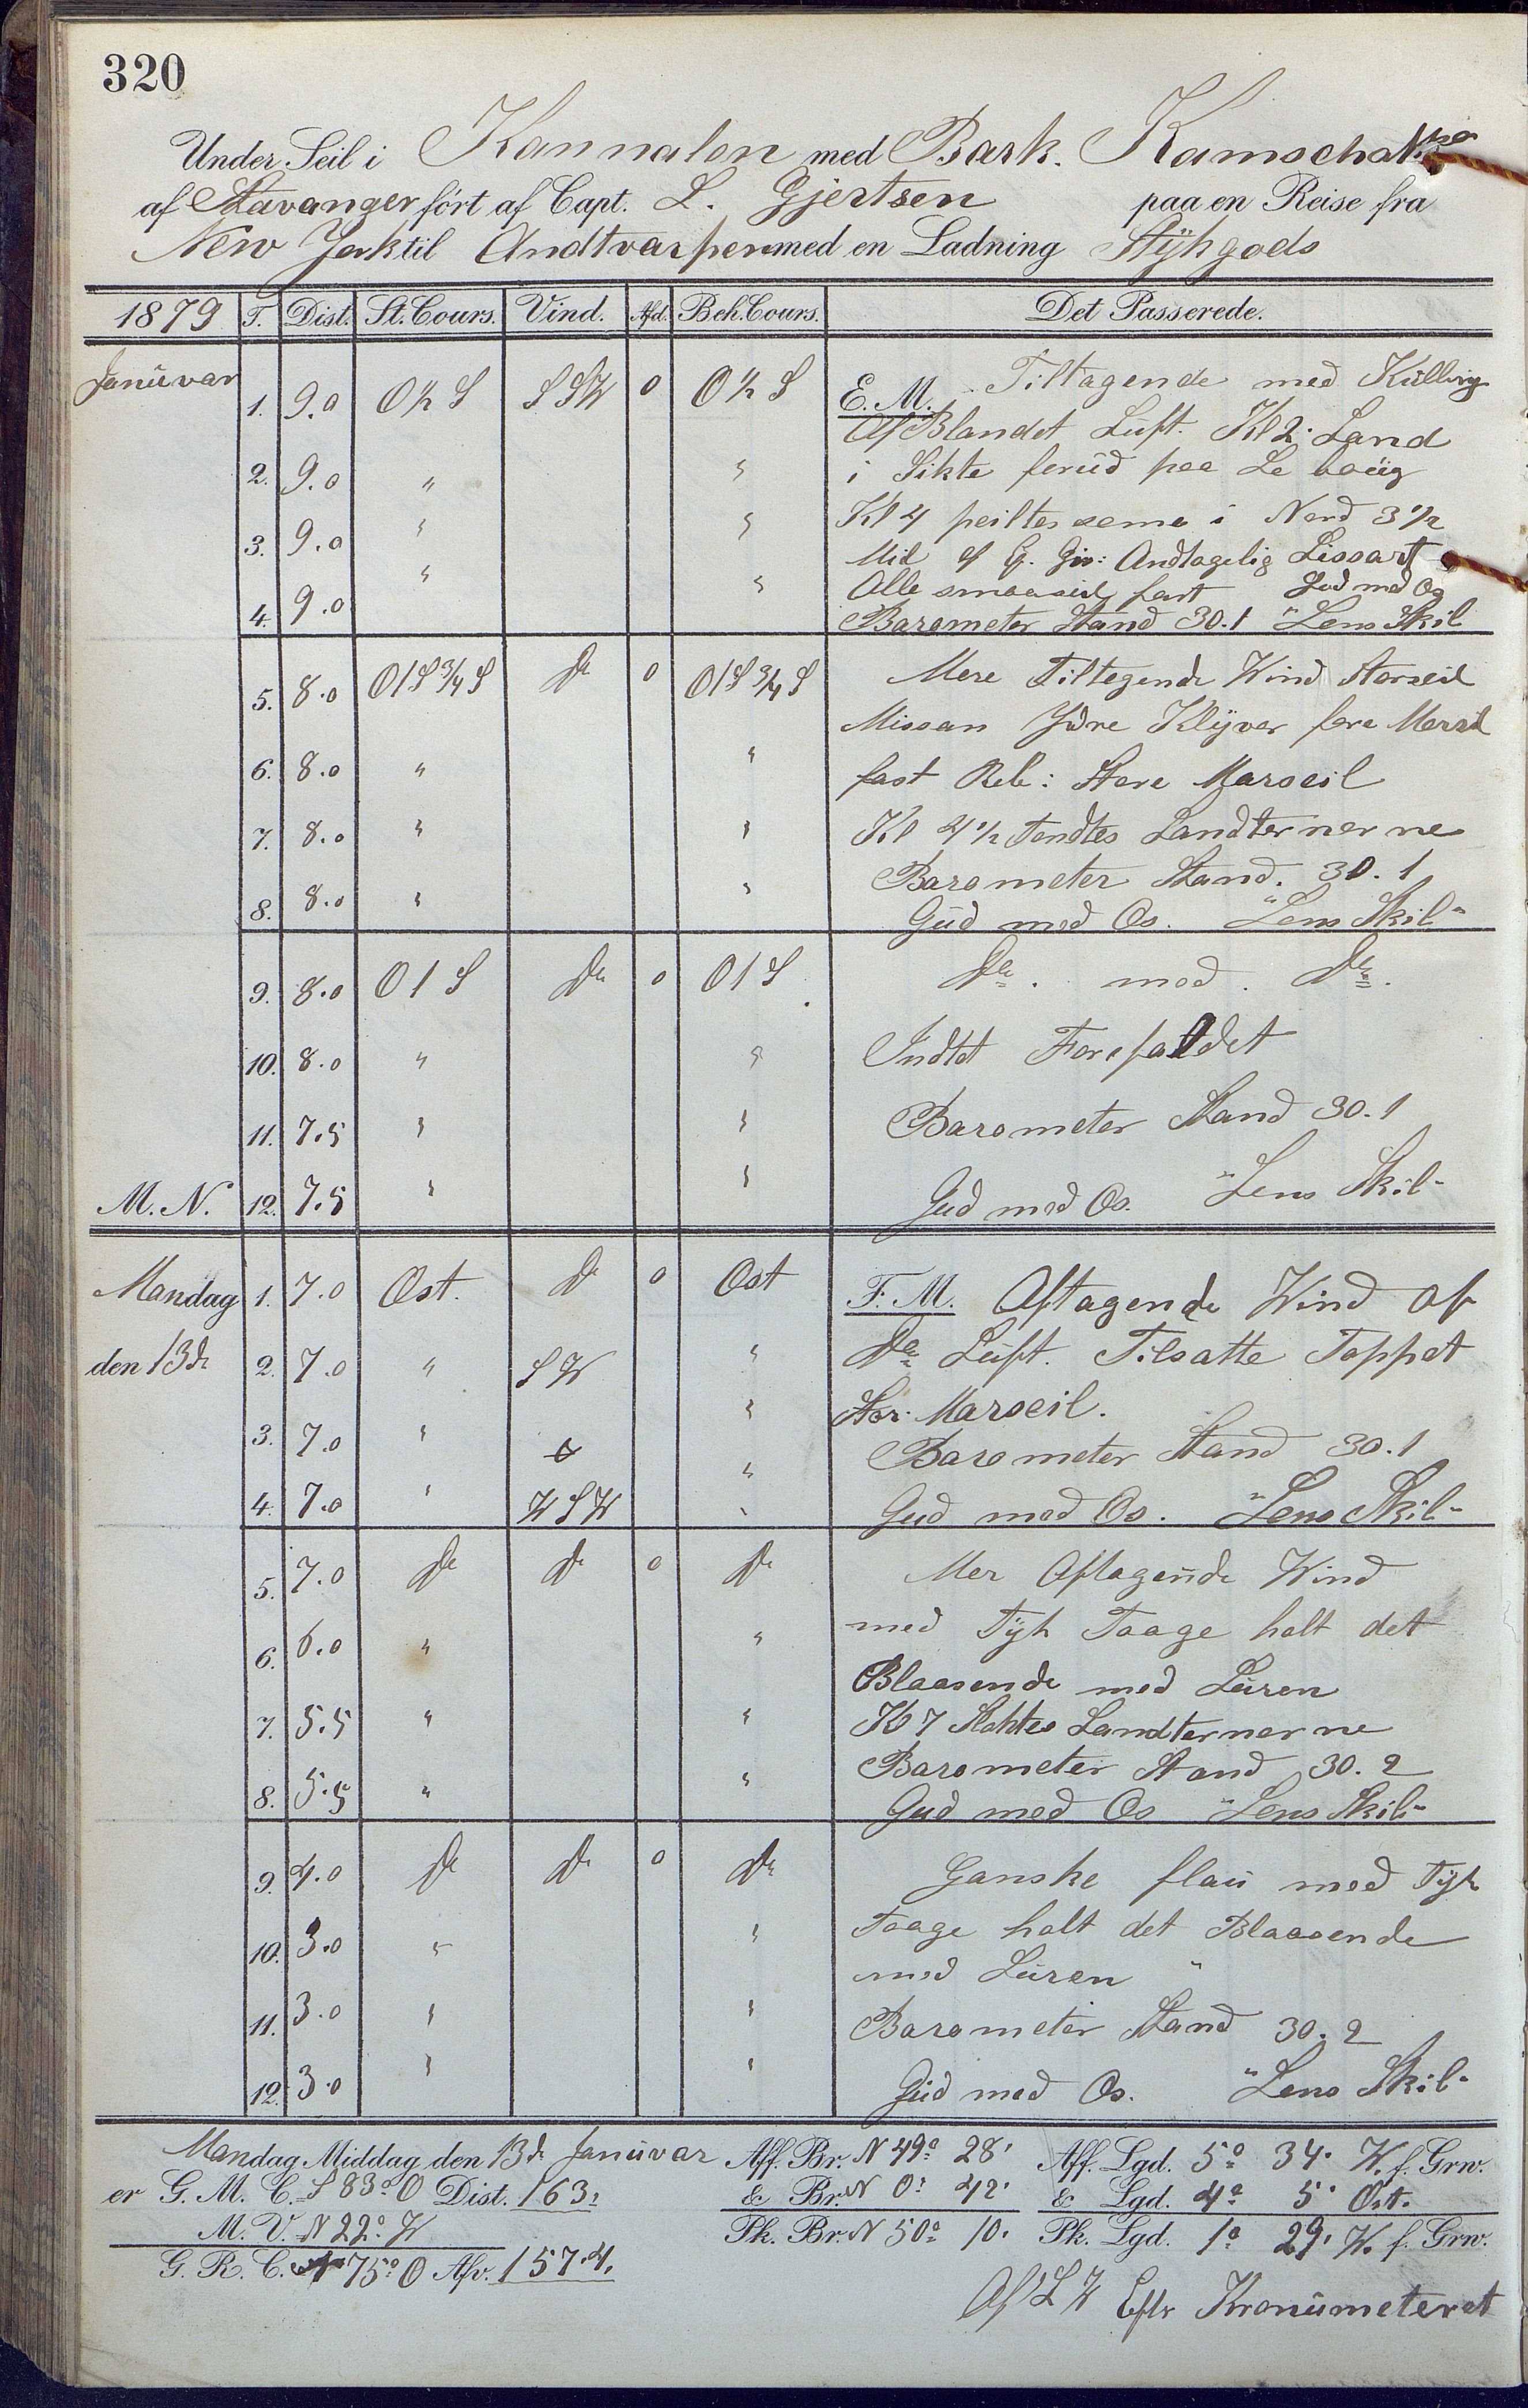 320
Under Seil i Kannalen med Bark. Kamschatka
af Stavanger ført af Capt. L. Gjertsen paa en Reise fra
New York til Andtvarpen med en Ladning Stÿkgods
1879 T. Dist. St. Cours. Vind. Afd. Beh. Cours. Det Passerede.
Januvar 1. 9.0 O ½ S S S W 0 O ½ S E. M. Tiltagende med Kulling
Af Blandet Luft. Kl 2. Land
2. 9.0 " " i Sikte forud paa Le boug
3. 9.0 " " Kl 4 peiltes seme i Nord 3 ½
Mil af G. Gis: Andtagelig Lissart
4. 9.0 " " Alle smaaseil fast Gud med Os
Barometer Stand 30.1 "Lens Skil
5. 8.0 O 1 S ¾ S Do 0 O 1 S ¾ S Mere Tiltegende Wind Storseil
Missan Ydre Klÿver fore Merseil
6. 8.0 " " fast Reb: Store Marseil
7. 8.0 " " Kl 4 ½ Tendtes Landternerne
Barometer Stand. 30.1
8. 8.0 " " Gud med Os. "Lens Skil"
9. 8.0 O 1 S Do 0 O 1 S Do. med. Do.
10. 8.0 " " Indtet Forefaldet
11. 7.5 " " Barometer Stand 30.1
M. N. 12. 7.5 " " Gud med Os. "Lens Skil"
Mandag 1. 7.0 Ost. Do 0 Ost F. M. Aftagende Wind af
den 13de 2. 7.0 " S W " Do Luft. Tilsatte Toppet
3. 7.0 " " Stor. Marseil.
Barometer Stand 30.1
4. 7.0 " W S W " Gud med Os. "Lens Skil"
5. 7.0 Do Do 0 Do Mer Aftagende Wind
6. 6.0 " " med Tÿk Taage holt det
Blaasende med Luren
7. 5.5 " " Kl 7 Sloktes Landternerne
Barometer Stand 30.2
8. 5.5 " " Gud med Os "Lens Skil"
9. 4.0 Do Do 0 Do Ganske flau med Tÿk
10. 3.0 " " Taage holt det Blaasende
med Luren "
11. 3.0 " " Barometer Stand 30.2
12. 3.0 " " Gud med Os. "Lens Skil"
Mandag Middag den 13de Januvar Aff. Br. N 49° 28' Aff. Lgd. 5° 34' W. f. Grw.
er G. M. C. S 83° O Dist. 163, & Br. N 0° 42' & Lgd. 4° 5' Ost.
M. V. N 22° W Pk. Br. N 50° 10' Pk. Lgd. 1° 29' W. f. Grw.
G. R. C. 75° O Afv. 157.4.
Eftr Kronumeteret